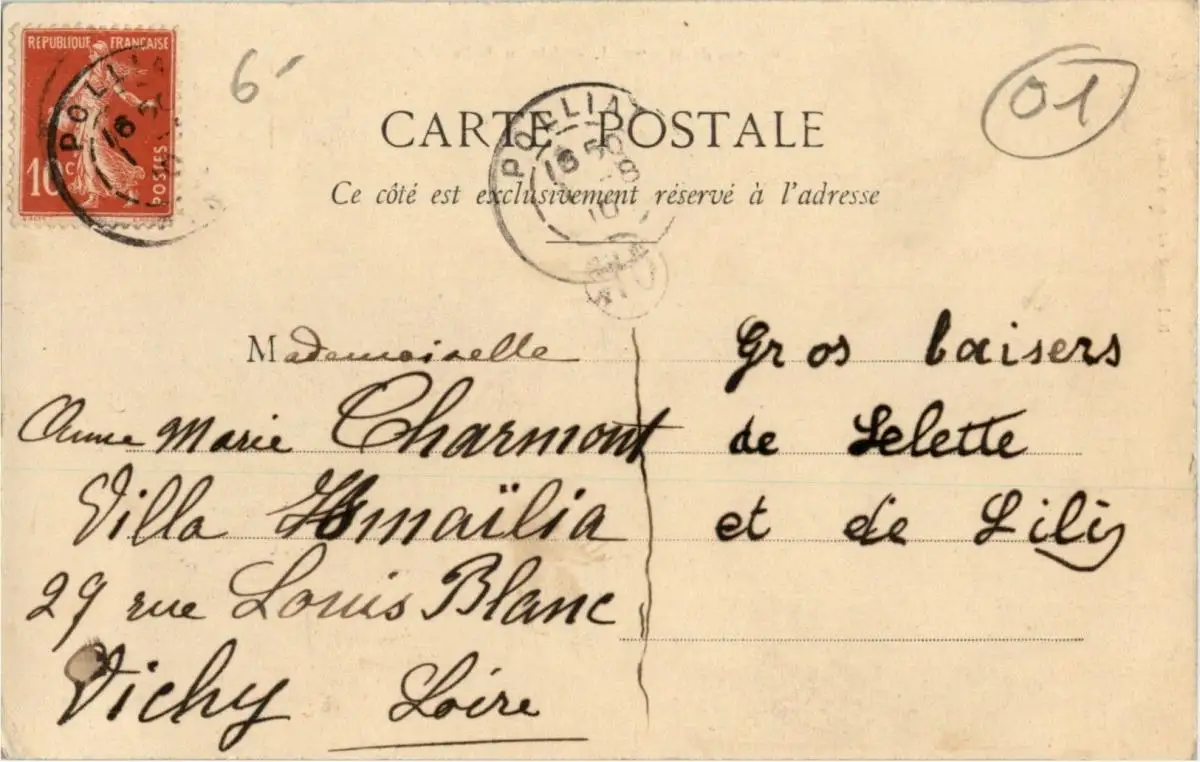 REPUBLIQUE FRANÇAISE
10 c
POSTES
POLLIAT
6
01
CARTE POSTALE
POLLIAT
16 50
8
10
Ce côté est exclusivement réservé à l'adresse
Mademoiselle
Anne Marie Charmont
Villa Ismaïlia
29 rue Louis Blanc
Vichy Loire
Gros baisers
de Lelette
et de Lili